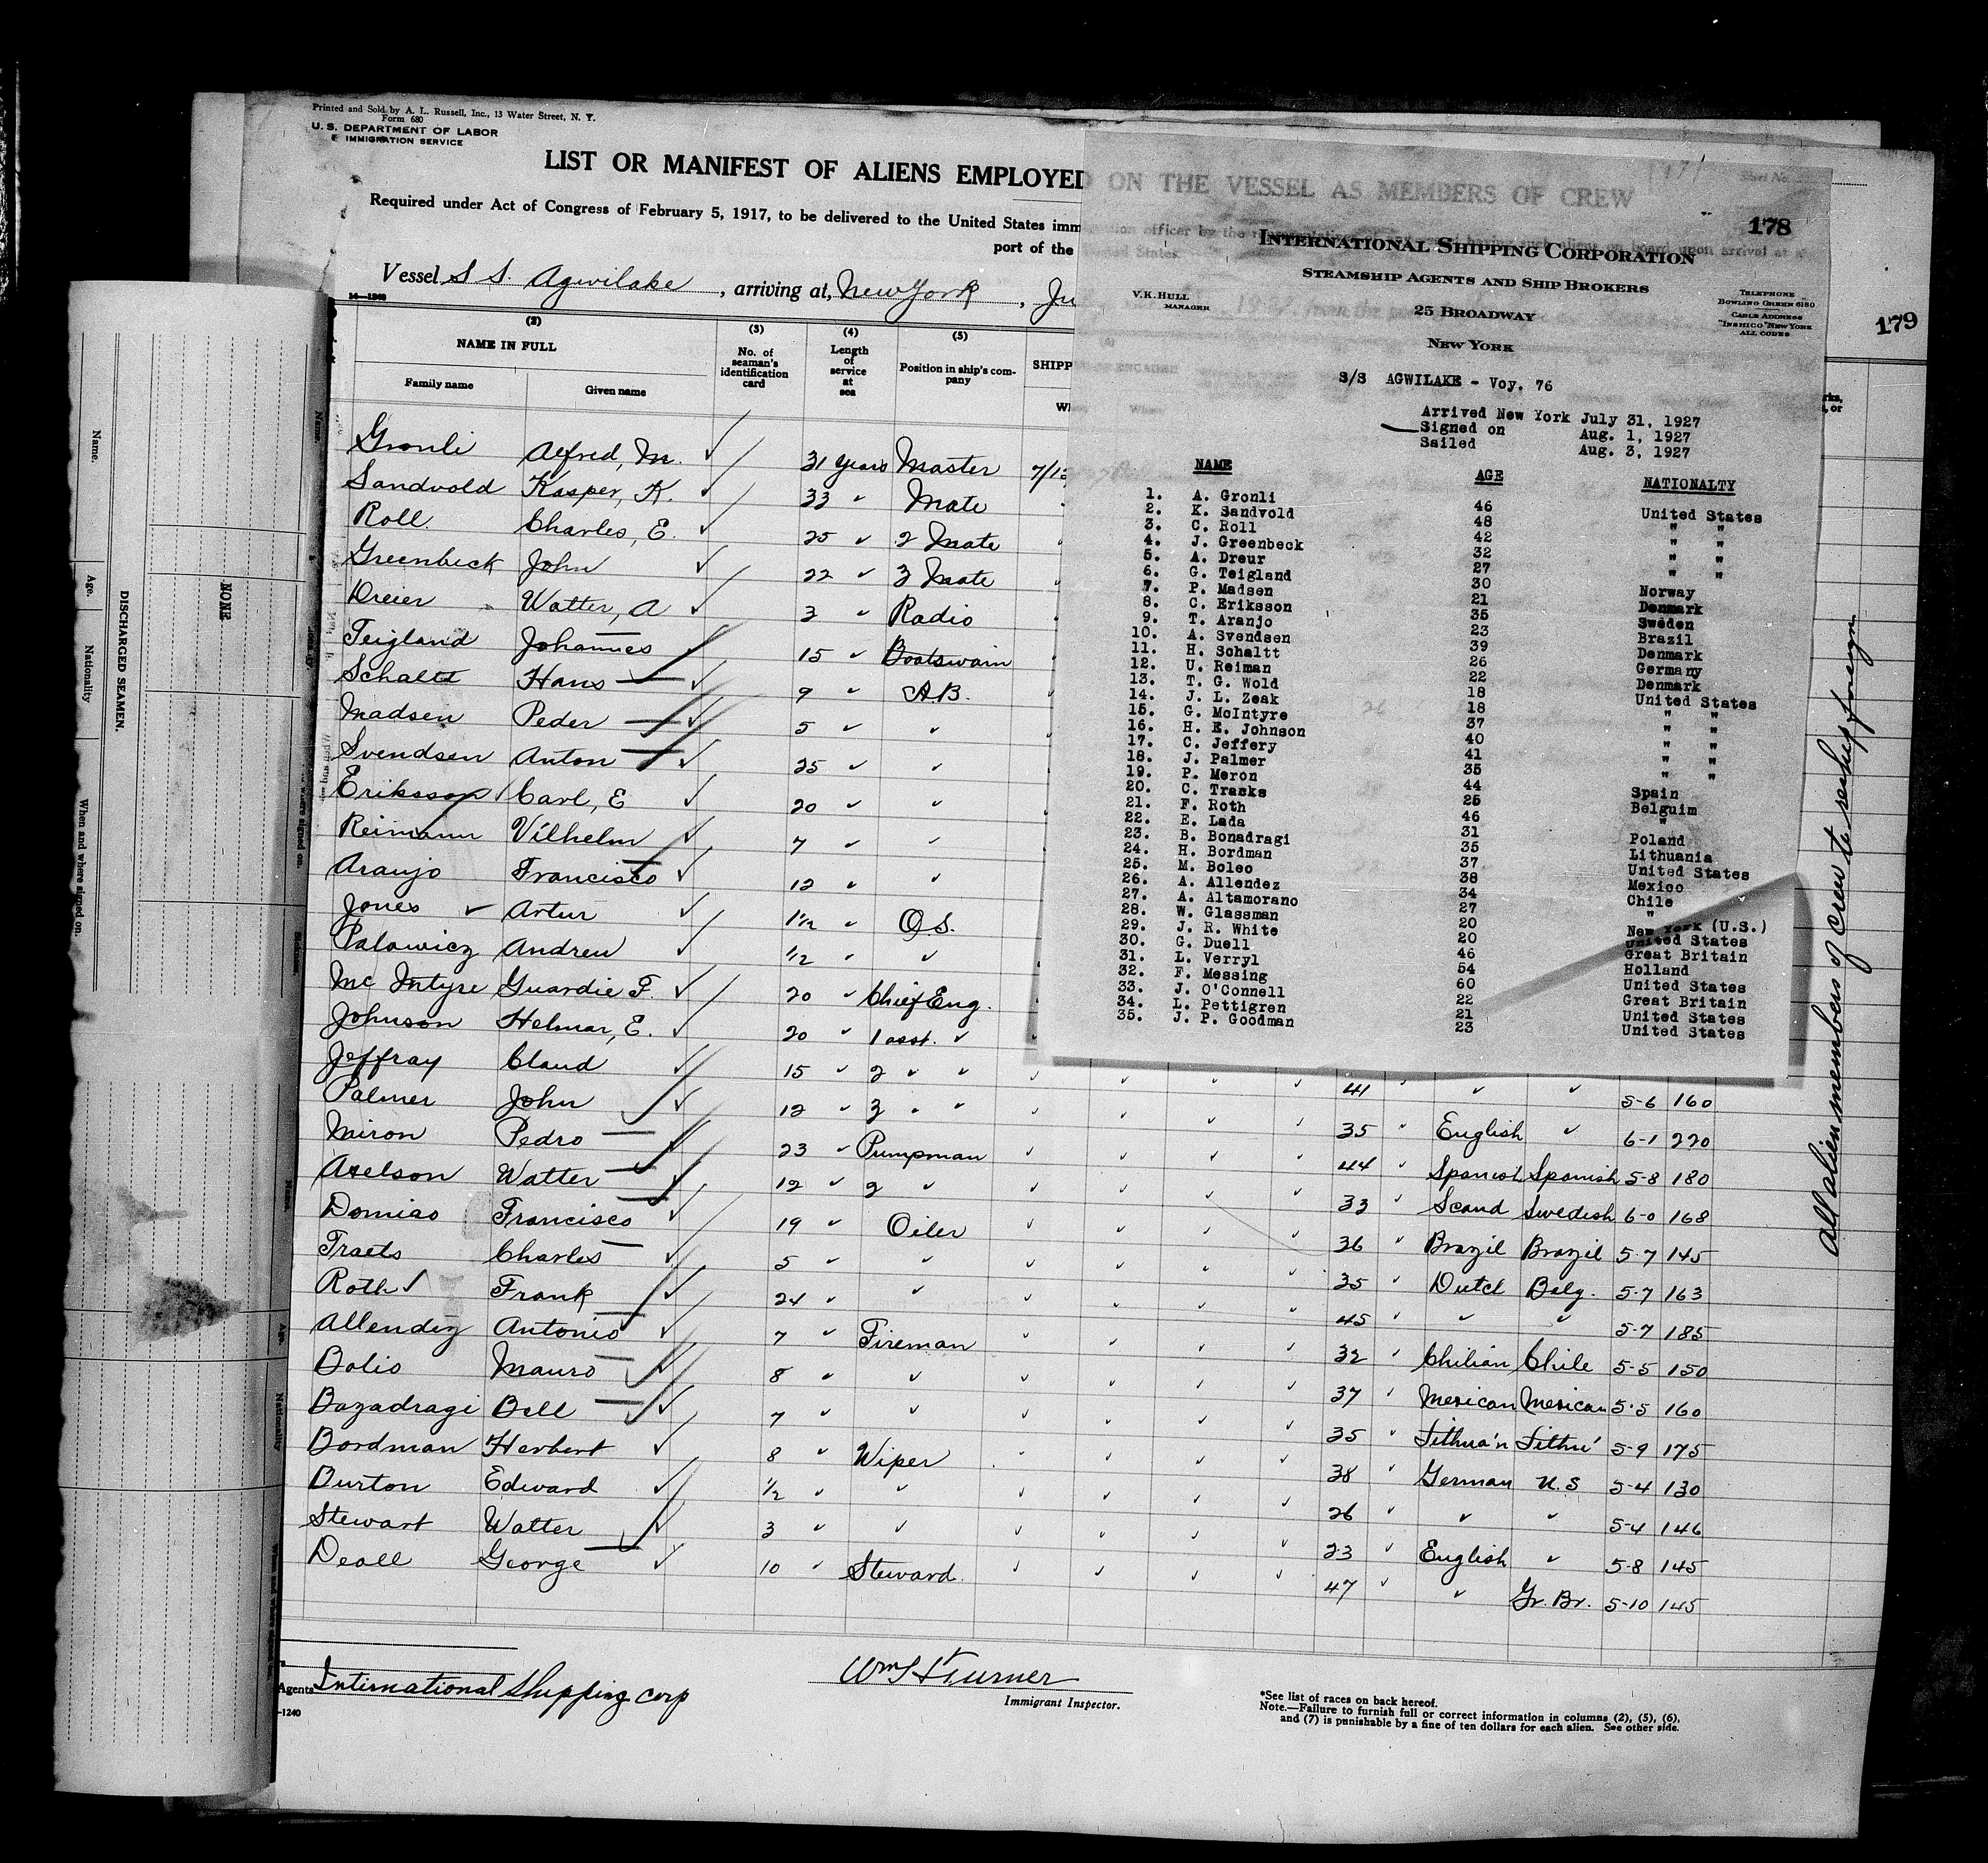 Printed and Sold by A. L. Russell, Inc., 13 Water Street, N. Y.
Form 680
U. S. DEPARTMENT OF LABOR
IMMIGRATION SERVICE
LIST OR MANIFEST OF ALIENS EMPLOYED ON THE VESSEL AS MEMBERS OF CREW
Required under Act of Congress of February 5, 1917, to be delivered to the United States imm
port of the
Vessel S S. Agwilake, arriving at, New York, Ju
14—1240
(2) (3) (4) (5)
NAME IN FULL
Family name Given name
No. of seaman's identification card
Length of service at sea
Position in ship's company
SHIPP
Gronli Alfred, M. 31 years Master
Sandvold Kasper, K. 33 " Mate
Roll Charles, E. 25 " 2 Mate
Greenbeck John 22 " 3 Mate
Dreier Walter, A 3 " Radio
Teigland Johannes 15 " Boatswain
Schaltt Hans 9 " A.B.
Madsen Peder 5 " "
Svendsen Anton 25 " "
Eriksson Carl, E 20 " "
Reimann Vilhelm 7 " "
Araujo Francisco 12 " "
Jones Artur 1 1/2 " O.S.
Palowicz Andrew 1/2 " "
Mc Intyre Guardie F. 20 " Chief Eng.
Johnson Helmar, E. 20 " 1 asst. "
Jeffray Claud 15 " 2 " " 41 " " " 5-6 160
Palmer John 12 " 3 " " 35 " English " 6-1 220
Miron Pedro 23 " Pumpman 44 " Spanish Spanish 5-8 180
Axelson Walter 12 " 2 " 33 " Scand Swedish 6-0 168
Domiao Francisco 19 " Oiler 36 " Brazil Brazil 5-7 145
Traets Charles 5 " " 35 " Dutch Belg. 5-7 163
Roth Frank 24 " " 45 " " " 5-7 185
Allendez Antonio 7 " Fireman 32 " Chilian Chile 5-5 150
Bolio Mauro 8 " " 37 " Mexican Mexican 5-5 160
Bazadragi Bell 7 " " 35 " Lithua'n Lithu' 5-9 175
Bordman Herbert 8 " Wiper 38 " German U.S 5-4 130
Burton Edward 1/2 " " 26 " " " 5-4 146
Stewart Walter 3 " " 23 " English " 5-8 145
Deall George 10 " Steward 47 " " Gr. Br. 5-10 145
Agents International Shipping Corp
-1240
Wm S Turner
Immigrant Inspector.
*See list of races on back hereof.
Note.—Failure to furnish full or correct information in columns (2), (5), (6),
and (7) is punishable by a fine of ten dollars for each alien. See other side.
178
INTERNATIONAL SHIPPING CORPORATION
STEAMSHIP AGENTS AND SHIP BROKERS
V. K. HULL
MANAGER
25 BROADWAY
NEW YORK
TELEPHONE
BOWLING GREEN 6180
CABLE ADDRESS
"INSHICO" NEW YORK
ALL CODES
S/S AGWILAKE - Voy. 76
Arrived New York July 31, 1927
Signed on Aug. 1, 1927
Sailed Aug. 3, 1927
NAME AGE NATIONALTY
1. A. Gronli 46 United States
2. K. Sandvold 48 " "
3. C. Roll 42 " "
4. J. Greenbeck 32 " "
5. A. Dreur 27 " "
6. G. Teigland 30 Norway
7. P. Madsen 21 Denmark
8. C. Eriksson 35 Sweden
9. T. Aranjo 23 Brazil
10. A. Svendsen 39 Denmark
11. H. Schaltt 26 Germany
12. U. Reiman 22 Denmark
13. T. G. Wold 18 United States
14. J. L. Zeak 18 " "
15. G. McIntyre 37 " "
16. H. E. Johnson 40 " "
17. C. Jeffery 41 " "
18. J. Palmer 35 " "
19. P. Meron 44 Spain
20. C. Trasks 25 Belguim
21. F. Roth 46 "
22. E. Lada 31 Poland
23. B. Bonadragi 35 Lithuania
24. H. Bordman 37 United States
25. M. Boleo 38 Mexico
26. A. Allendez 34 Chile
27. A. Altamorano 27 "
28. W. Glassman 20 New York (U.S.)
29. J. R. White 20 United States
30. G. Duell 46 Great Britain
31. L. Verryl 54 Holland
32. F. Messing 60 United States
33. J. O'Connell 22 Great Britain
34. L. Pettigren 21 United States
35. J. P. Goodman 23 United States
179
All alien members of crew to reship foreign
Name.
Age.
Nationality
When and where signed on.
DISCHARGED SEAMEN.
NONE